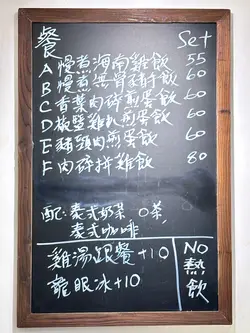 餐 Set
A 慢煮海南雞飯 55
B 慢煮無骨豬手飯 60
C 香葉肉碎煎蛋飯 60
D 椒鹽雞扒煎蛋飯 60
E 豬頸肉煎蛋飯 60
F 肉碎拼雞飯 80
配: 泰式奶茶 0茶
泰式咖啡
雞湯跟餐 +10
龍眼冰 +10
NO
熱
飲